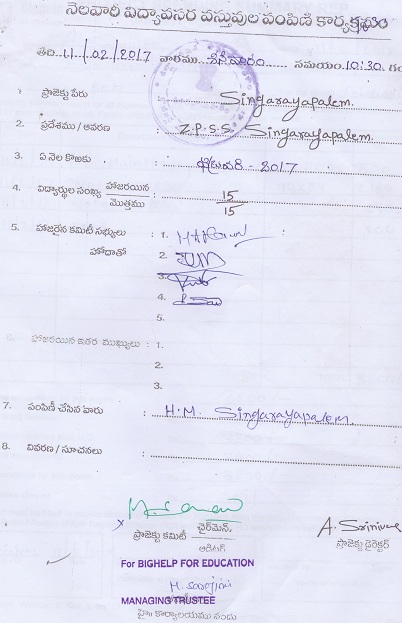 నెలవారీ విద్యావసర వస్తువుల పంపిణీ కార్యక్రమం
తేది 11/02/2017 వారము శనివారం సమయం 10:30
1. ప్రాజెక్టు పేరు : Singarayapalem.
2. ప్రదేశము / ఆవరణ : Z.P.S.S. Singarayapalem.
3. ఏ నెల కొఱకు : ఫిబ్రవరి - 2017
4. విద్యార్థుల సంఖ్య హాజరయిన / మొత్తము : 15 / 15
5. హాజరైన కమిటీ సభ్యులు : 1.
హోదాతో 2.
3.
4.
5.
హాజరయిన ఇతర ముఖ్యులు : 1.
2.
3.
7. పంపిణీ చేసిన వారు : H.M. Singarayapalem.
8. వివరణ / సూచనలు :
ప్రాజెక్టు కమిటీ చైర్‌మెన్.
ఆడిటర్
A. Srinivas
ప్రాజెక్టు డైరెక్టర్
For BIGHELP FOR EDUCATION
M. Sarojini
MANAGING TRUSTEE
హై॥ కార్యాలయము నందు